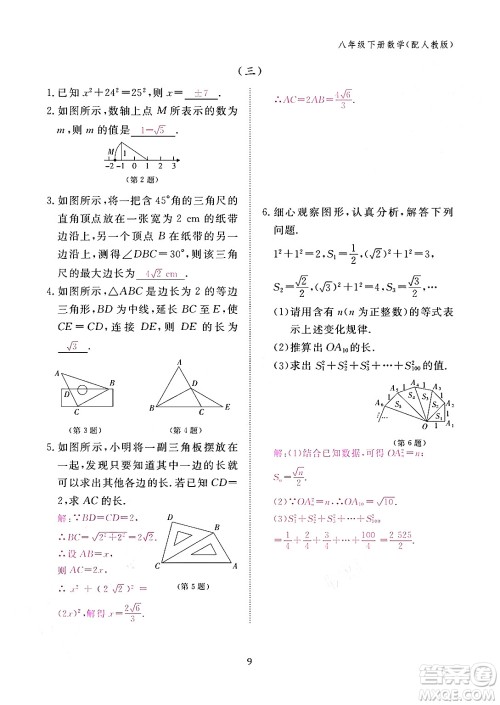 八年级下册数学(配人教版)
(三)
1. 已知 x²+24²=25², 则 x= ±7 .
2. 如图所示, 数轴上点 M 所表示的数为
m, 则 m 的值是 1-√5 .
M
1
-2 -1 0 1 2 3
(第 2 题)
3. 如图所示, 将一把含 45°角的三角尺的
直角顶点放在一张宽为 2 cm 的纸带
边沿上, 另一个顶点在纸带的另一边
沿上, 测得∠DBC=30°, 则此三角
尺的最大边长为 4√2 cm .
4. 如图所示, △ABC 是边长为 2 的等边
三角形, BD 为中线, 延长 BC 至 E, 使
CE=CD, 连接 DE, 则 DE 的长为
√3 .
A B C D
A D B C E
(第 3 题) (第 4 题)
5. 如图所示, 小明将一副三角板摆放在
一起, 发现只要知道其中一边的长就
可以求出其他各边的长. 若已知 CD=
2, 求 AC 的长.
解: ∵BD=CD=2,
∴BC=√(2²+2²)=2√2.
∴设 AB=x,
则 AC=2x.
∴ x²+(2√2)²=
(2x)², 解得 x=2√6/3.
A B C D
(第 5 题)
∴AC=2AB=4√6/3.
6. 细心观察图形, 认真分析, 解答下列
问题.
1²+1²=2, S₁=1/2, (√2)²+1²=3,
S₂=√2/2, (√3)²+1²=4, S₃=√3/2, …
(1)请用含有 n(n 为正整数)的等式表
示上述变化规律.
(2)推算出 OA₁₀ 的长.
(3)求出 S₁²+S₂²+S₃²+…+S₁₀₀² 的值.
(第 6 题)
解:(1)结合已知数据,可得OAₙ²=n;
Sₙ=√n/2.
(2)∵OAₙ²=n,∴OA₁₀=√10.
(3)S₁²+S₂²+S₃²+…+S₁₀₀²
=1/4+2/4+3/4+…+100/4=2 525/2.
9